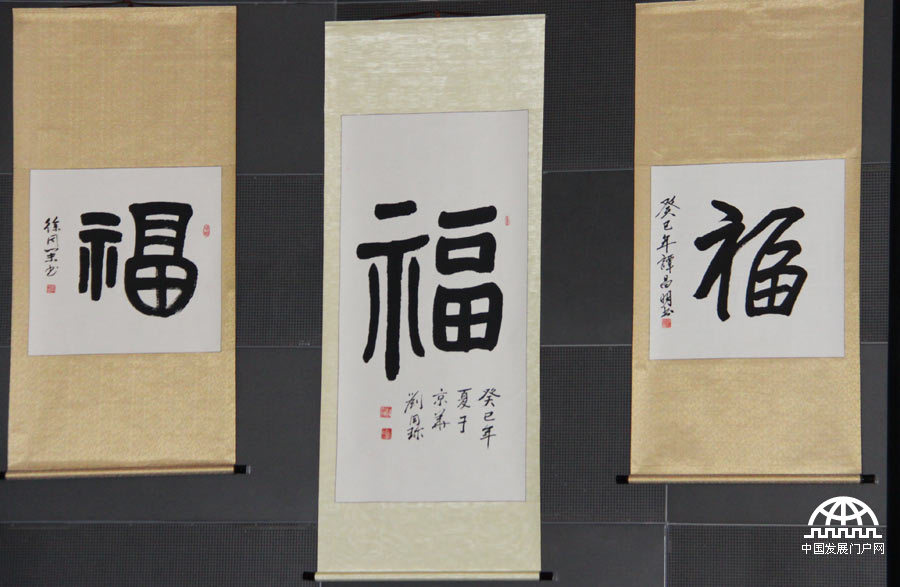 福
徐同業书
福
癸巳年
夏于
京华
劉同琭
福
癸巳年譚昌明书
中国发展门户网